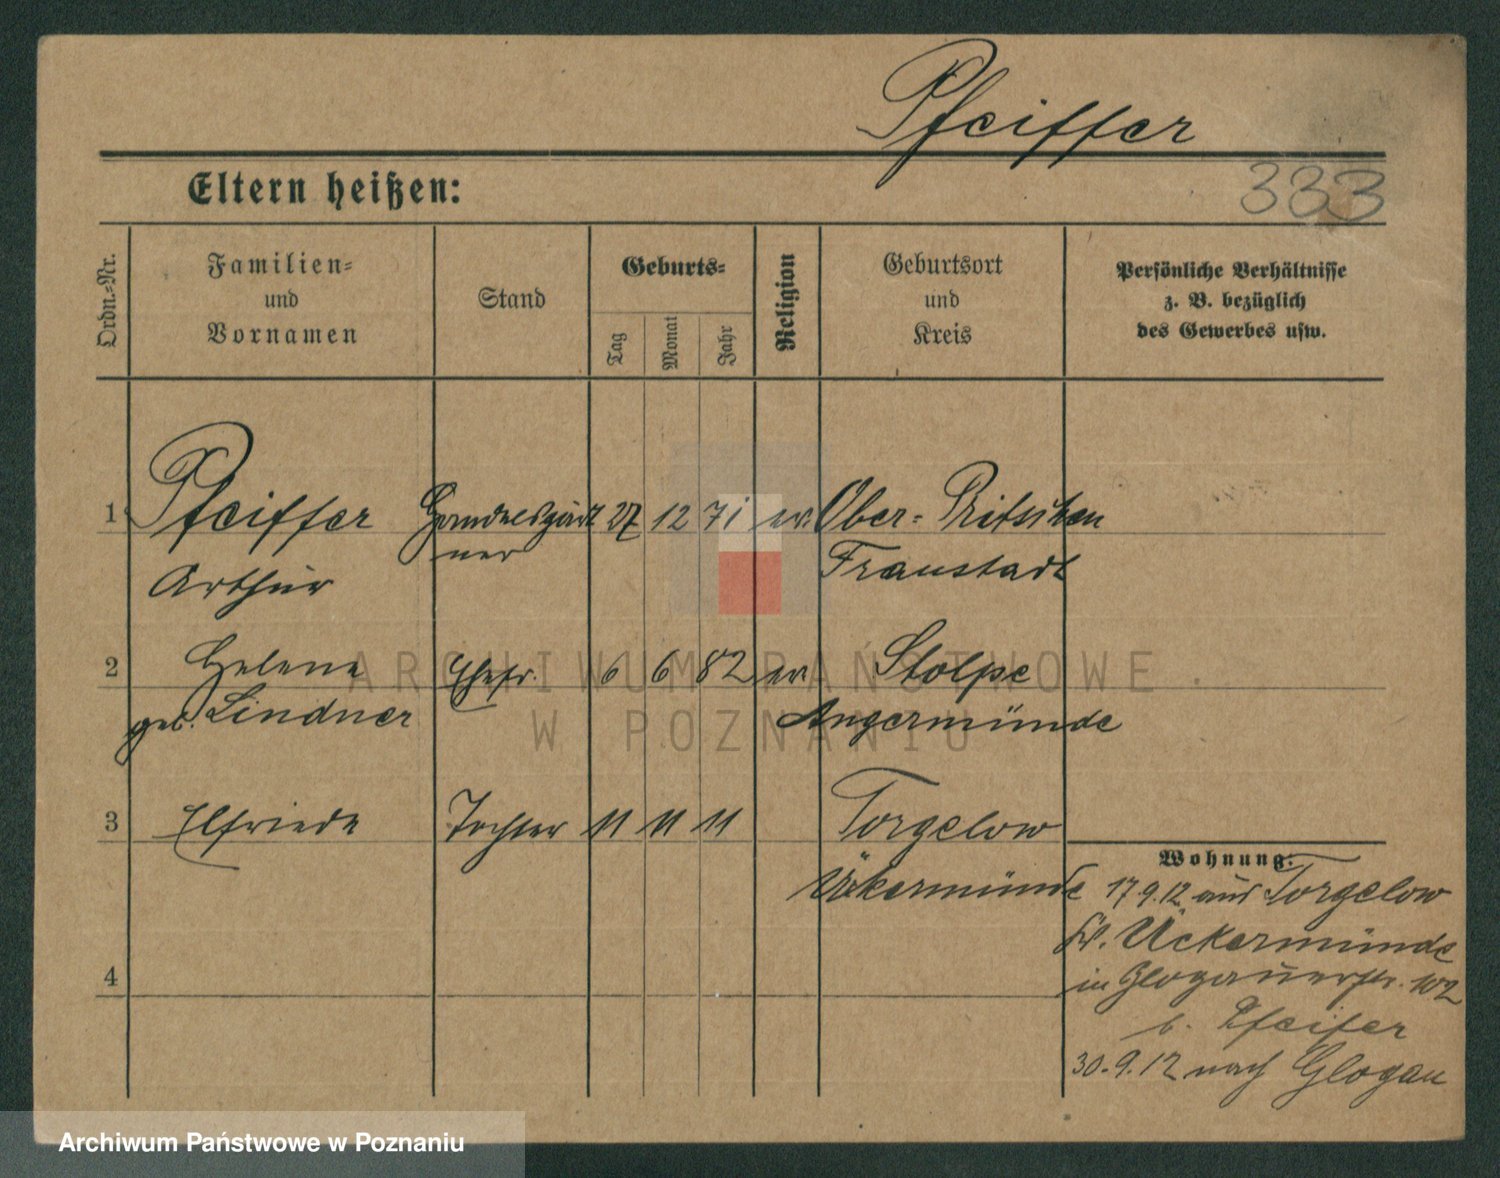 Pfeiffer
Eltern heißen:
333
Ordn.-Nr.
Familien-
und
Vornamen
Stand
Geburts-
Tag
Monat
Jahr
Religion
Geburtsort
und
Kreis
Persönliche Verhältnisse
z. B. bezüglich
des Gewerbes usw.
1 Pfeiffer Handelsgärt 27 12 71 ev. Ober-Pritschen
ner
Arthur Fraustadt
2 Helene Ehefr. 6 6 82 ev. Stolpe
geb. Lindner Angermünde
3 Elfriede Tochter 11 11 11 Torgelow
Ückermünde
4
Wohnung.
17 9. 12 aus Torgelow
Kr. Ückermünde
in Glogauerstr. 102
b. Pfeifer
30. 9. 12 nach Glogau
ARCHIWUM PAŃSTWOWE
W POZNANIU
Archiwum Państwowe w Poznaniu